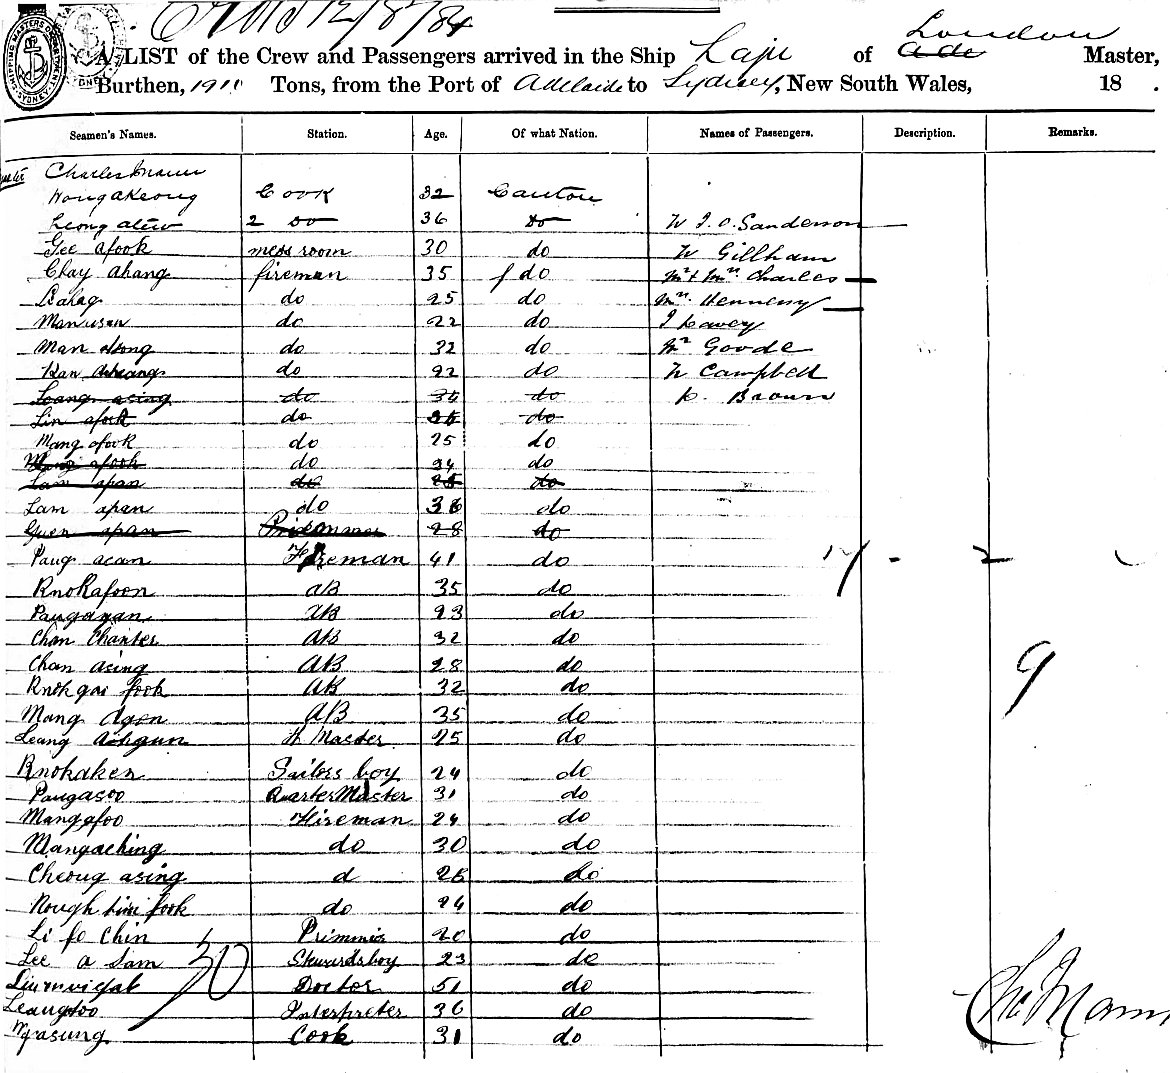 12/8/84
A LIST of the Crew and Passengers arrived in the Ship Laju of London Master,
Burthen, 1911 Tons, from the Port of Adelaide to Sydney, New South Wales, 18 .
Seamen's Names. Station. Age. Of what Nation. Names of Passengers. Description. Remarks.
Charles Mann
Wong akeong Cook 32 Canton
Leong 2 do 36 do W J. O. Sanderson
Gee afook mess room 30 do W Gillham
Chay ahang fireman 35 do Mr & Mrs Charles
do 25 do Mrs Hennessy
do 22 do J Lavey
Man do 32 do Mr Goode
Kan do 22 do W Campbell
Leang asing do 34 do C. Brown
Lin afook do do
Mang afook do 25 do
Mang afook do 24 do
Lam apan do 25 do
Lam apan do 36 do
Guen apan 28 do
Pang acan Fireman 41 do 17 - 2
Knokafoon AB 35 do
Pangayan AB 23 do
Chan Chanter AB 32 do
Chan asing AB 28 do 9
Knok gai fook AB 32 do
Mang Agon AB 35 do
Leang Master 25 do
Knokaken Sailors boy 24 do
Pangasoo Quarter Master 31 do
Mangafoo Fireman 24 do
Mangaching do 30 do
Cheong asing d 28 do
fook do 24 do
Li fo Chin 20 do
Lee a Sam Stewards boy 23 do
30
Doctor 51 do
Leangsoo Interpreter 36 do
Cook 31 do
Chs Mann